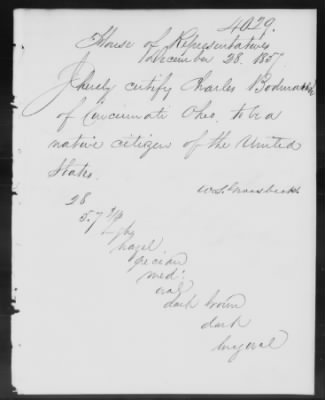 4029.
House of Representatives
December 28. 1857
I hereby certify Charles Bodmann
of Cincinnati Ohio. to be a
native citizen of the United
States.
W. S. Groesbeck
28
5.7
high
hazel
grecian
med:
oval
dark brown
dark
long oval